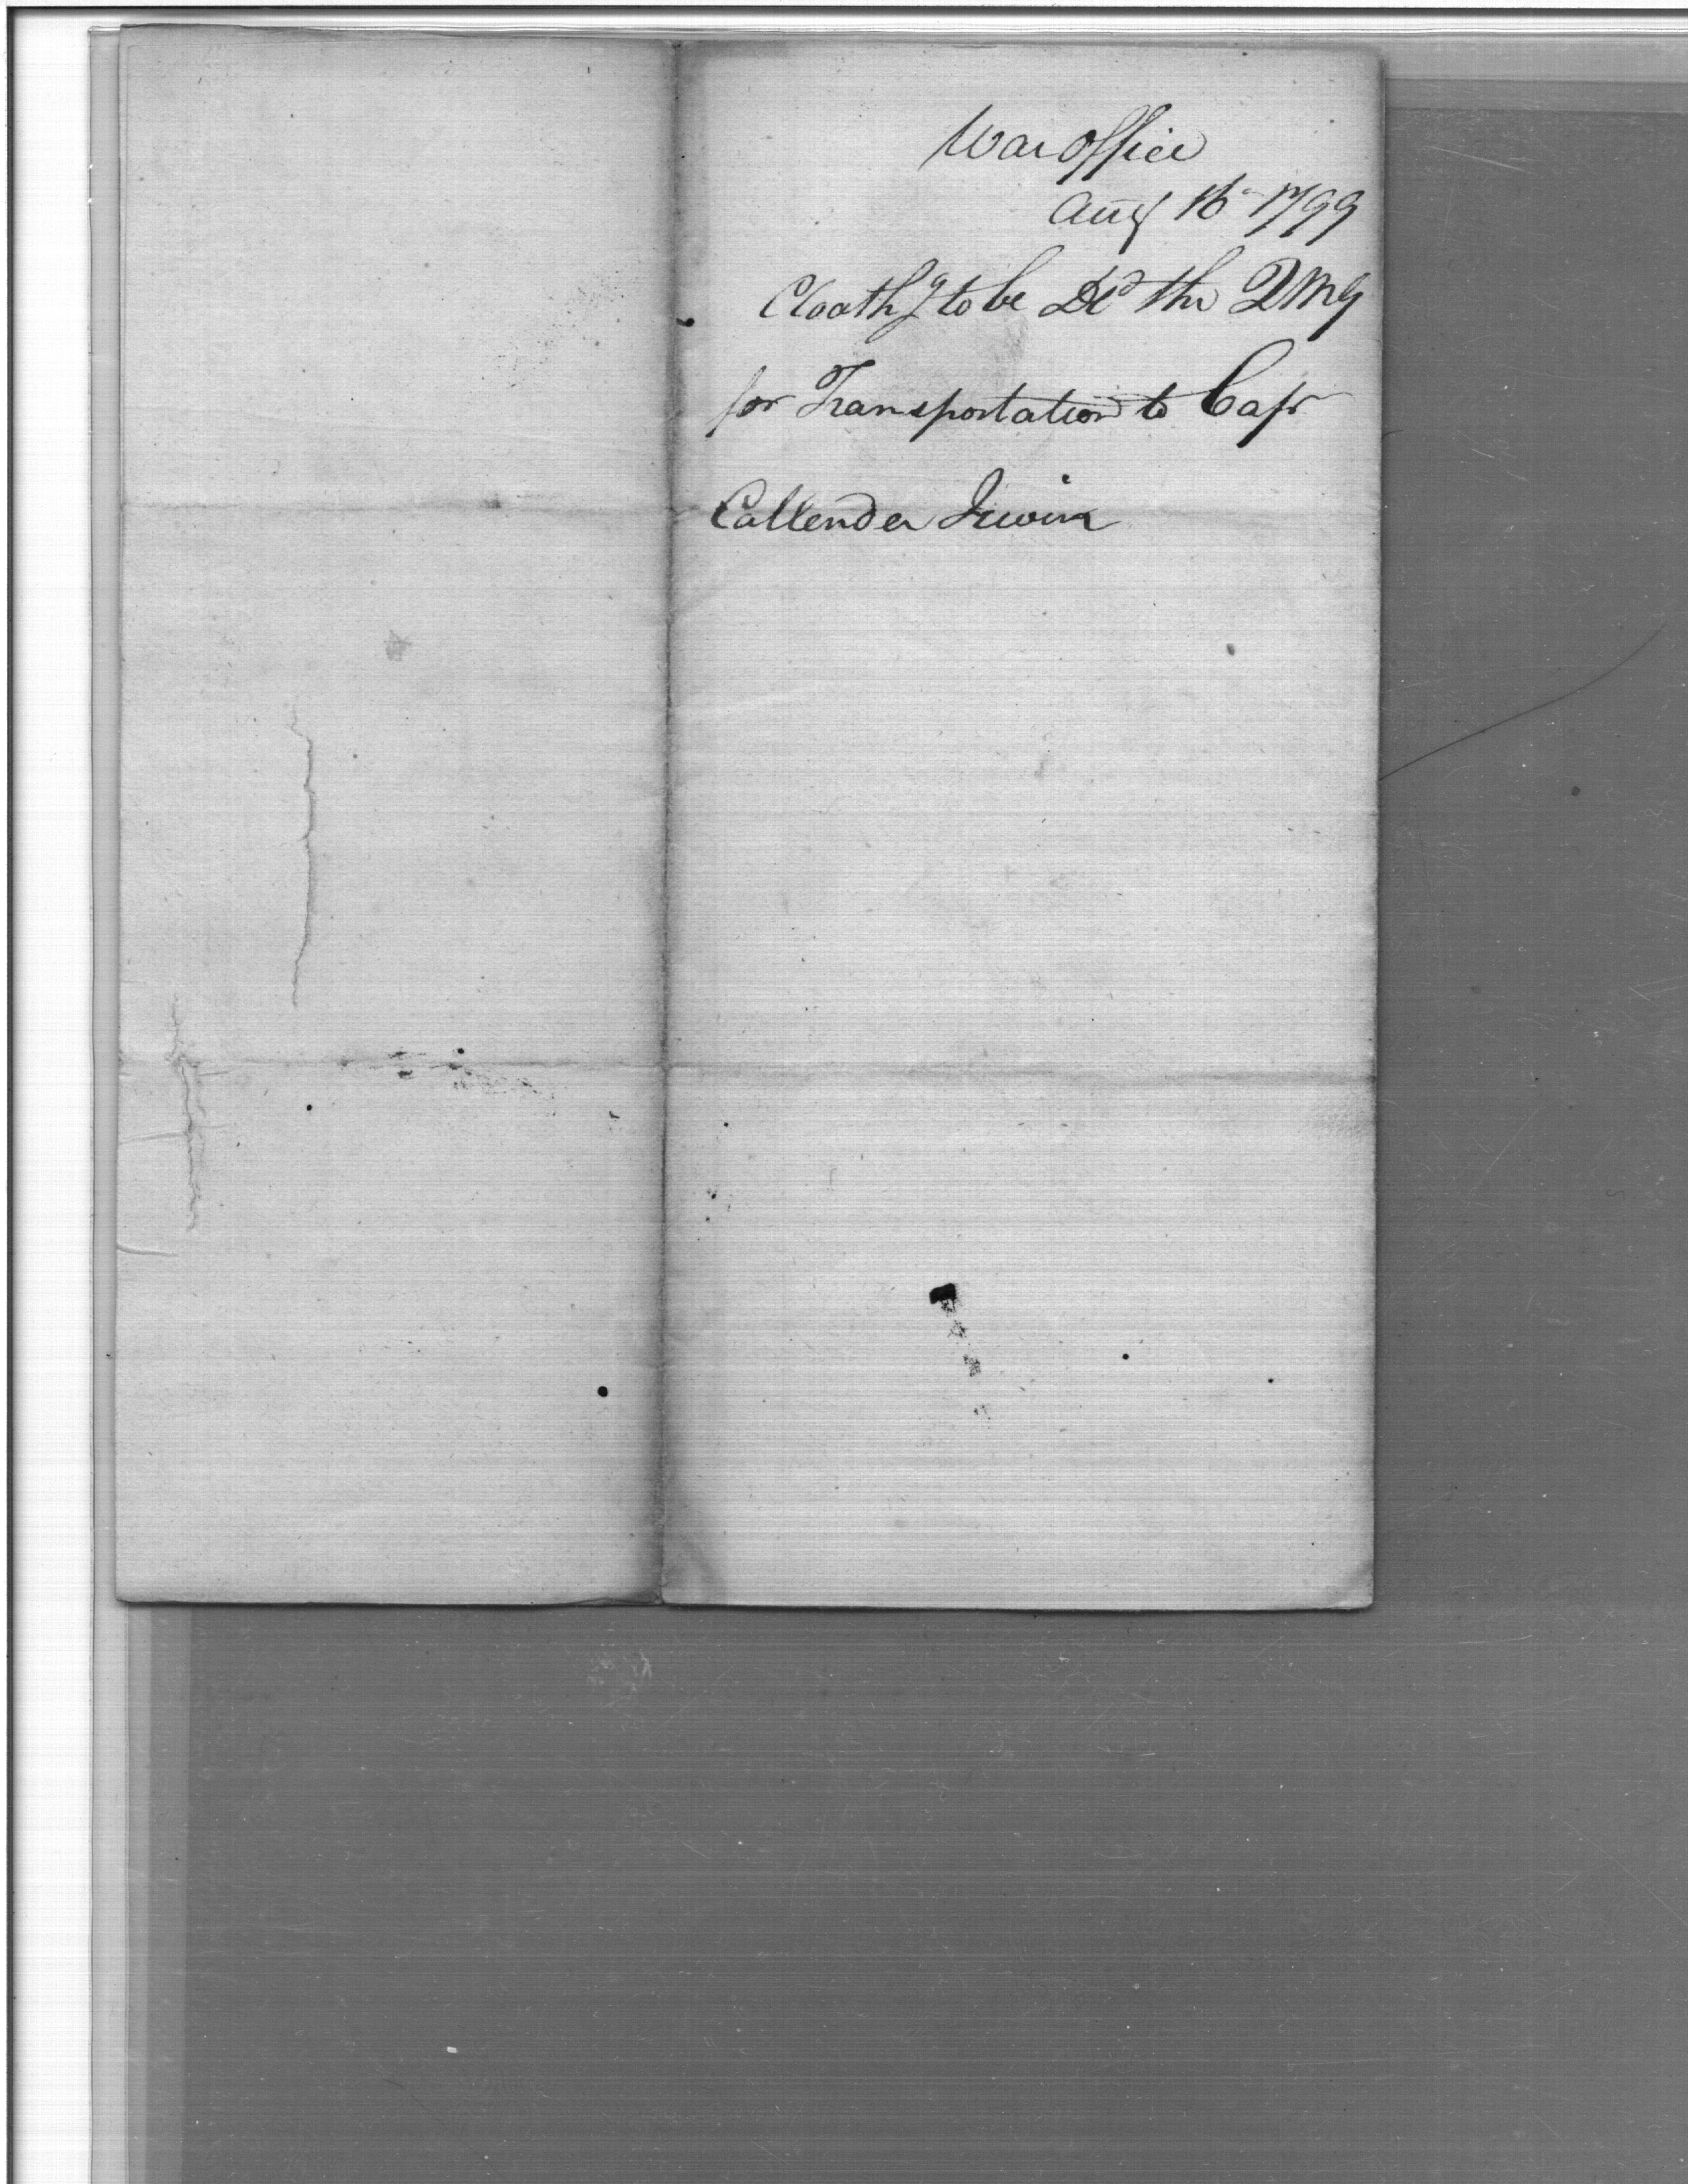 War Office
Aug 16 1799
Cloathg to be Dld the QMG
for Transportation to Capt
Callender Irwin